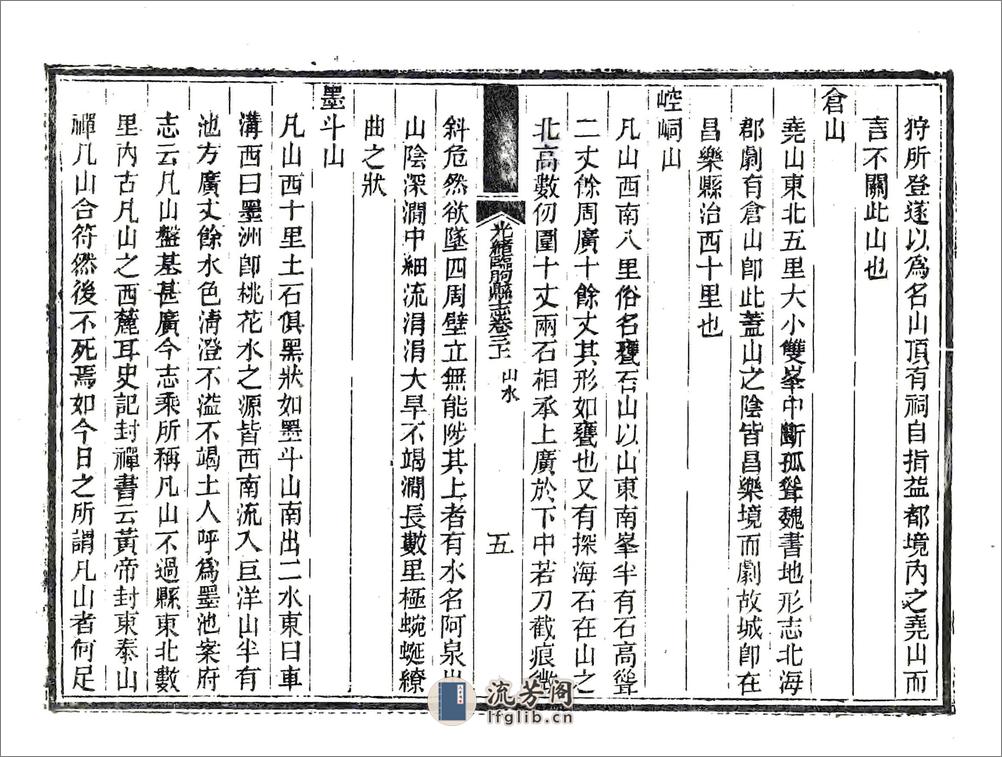 狩所登遂以爲名山頂有祠自指益都境內之堯山而
言不關此山也
倉山
堯山東北五里大小雙峯中斷孤聳魏書地形志北海
郡劇有倉山卽此蓋山之陰皆昌樂境而劇故城卽在
昌樂縣治西十里也
崆峒山
凡山西南八里俗名甕石山以山東南峯半有石高聳
二丈餘周廣十餘丈其形如甕也又有探海石在山之
北高數仞圍十丈兩石相承上廣於下中若刀截痕微
光緒臨朐縣志卷三上 山水 五
斜危然欲墜四周壁立無能陟其上者有水名阿泉出
山陰深澗中細流涓涓大旱不竭澗長數里極蜿蜒繚
曲之狀
墨斗山
凡山西十里土石俱黑狀如墨斗山南出二水東曰車
溝西曰墨洲卽桃花水之源皆西南流入巨洋山半有
池方廣丈餘水色淸澄不溢不竭土人呼爲墨池案府
志云凡山盤基甚廣今志乘所稱凡山不過縣東北數
里內古凡山之西麓耳史記封禪書云黃帝封東泰山
禪凡山合符然後不死焉如今日之所謂凡山者何足
流芳阁
lfglib.cn